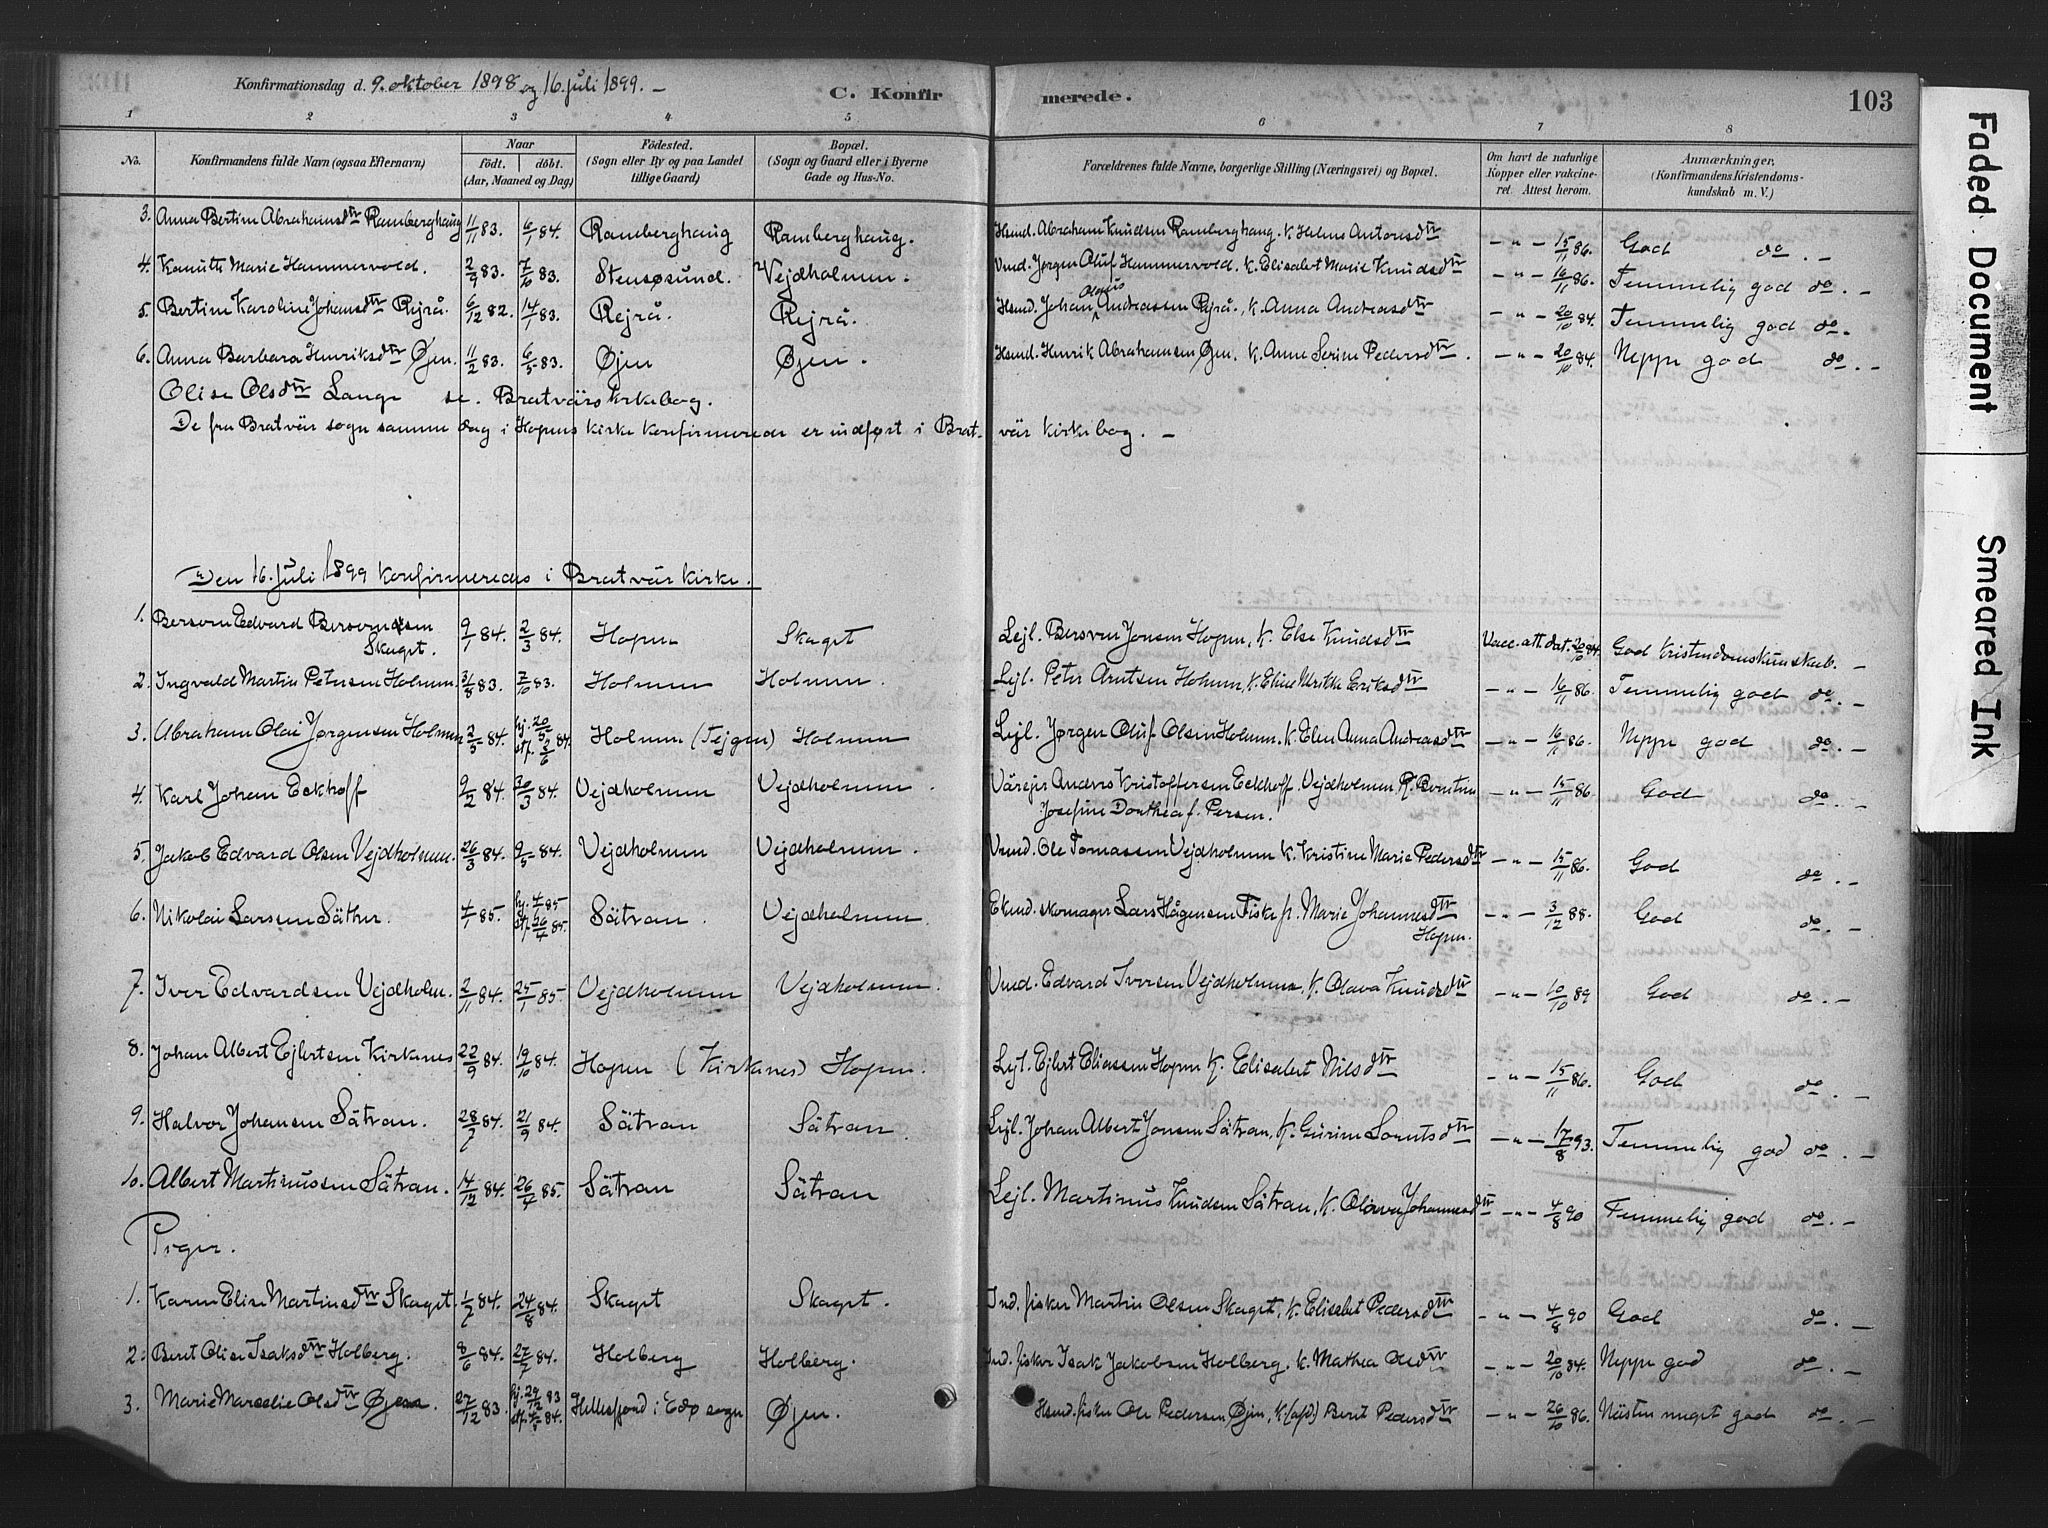 Konfirmationsdag d. 9. oktober 1898 og 16. juli 1899. –
C. Konfirmerede.
103
1 2 3 4 5 6 7 8
No.
Konfirmandens fulde Navn (ogsaa Efternavn)
Naar
født. døbt.
(Aar, Maaned og Dag)
Födested.
(Sogn eller By og paa Landet
tillige Gaard)
Bopæl.
(Sogn og Gaard eller i Byerne
Gade og Hus-No.
Forældrenes fulde Navne, borgerlige Stilling (Næringsvei) og Bopæl.
Om havt de naturlige
Kopper eller vakcine-
ret. Attest herom.
Anmærkninger.
(Konfirmandens Kristendoms-
kundskab m. V.)
3. Anna Bertine Abrahamsdtr Ramberghaug 11/11 83. 6/1 84. Ramberghaug Ramberghaug. Hsmd. Abraham Knudsen Ramberghaug. K. Helene Antonsdtr – " – 15/11 86. God do. –
4. Kanutte Marie Hammervold. 2/9 83. 7/10 83. Stensøsund. Vejdholmen. Vmd. Jørgen Oluf Hammervold. K. Elisabet Marie Knudsdtr – " – 16/11 86. Temmelig god do. –
5. Bertine Karoline Johansdtr Rejrå. 6/12 82. 14/1 83. Rejrå. Rejrå. Hsmd. Johan Olaus Andreassen Rejrå., K. Anna Andreasdtr – " – 20/10 84. Temmelig god do. –
6. Anna Barbara Henriksdtr Øjen. 11/2 83. 6/5 83. Øjen Øjen. Hsmd. Henrik Abrahamsen Øjen. K. Anne Serine Pedersdtr. – " – 20/10 84. Neppe god do. –
Olise Olsdtr Lange se. Bratværs kirkebog.
De fra Bratvær sogn samme dag i Hopens kirke konfirmerede er indført i Bratvær kirkebog. –
Den 16. juli 1899 konfirmeredes i Bratvær kirke.
1. Bersven Edvard Bersvendsen
Skaget. 9/1 84. 2/3 84. Hopen Skaget Lejl. Bersven Jonsen Hopen, K. Else Knudsdtr Vacc. att. dat. 20/10 84. God Kristendomskunskab. –
2. Ingvald Martin Petersen Holmen. 31/8 83. 7/10 83. Holmen Holmen. Lejl. Peter Arntsen Holmen, K. Eline Merikke Eriksdtr – " – 16/11 86. Temmelig god do. –
3. Abraham Olai Jørgensen Holmen 2/5 84. hj. 20/5 stf. 2/6 84. Holmen (Tejgen) Holmen Lejl. Jørgen Oluf Olsen Holmen. K. Elen Anna Andreasdtr – " – 16/11 86. Neppe god do. –
4. Karl Johan Eckhoff 9/2 84. 30/3 84. Vejdholmen Vejdholmen. Værejer Anders Kristoffersen Eckhoff. Vejdholmen, K. Berntine
Josefine Dorthea f. Persen. – " – 15/11 86. God do. –
5. Jakob Edvard Olsen Vejdholmen. 26/3 84. 9/5 84. Vejdholmen Vejdholmen. Vmd. Ole Tomassen Vejdholmen K. Kristine Marie Pedersdtr – " – 15/11 86. God do. –
6. Nikolai Larsen Säther. 4/1 85. hj. 4/1 85 stf. 26/4 85. Sätran. Vejdholmen. Ekmd. skomager Lars Hågensen Fiske p. Marie Johannesdtr
Hopen. – " – 3/12 88. God do. –
7. Iver Edvardsen Vejdholm. 2/11 84. 25/1 85. Vejdholmen Vejdholmen. Vmd. Edvard Iversen Vejdholmen, K. Olava Knudsdtr – " – 10/10 89 God do. –
8. Johan Albert Ejlertsen Kirkenes 22/9 84. 19/10 84. Hopen (Kirkenes) Hopen. Lejl. Ejlert Eliassen Hopen K. Elisabet Nilsdtr – " – 15/11 86. God do. –
9. Halvor Johansen Sätran. 28/7 84. 21/9 84. Sätran Sätran. Lejl. Johan Albert Jonsen Sätran, K. Gurine Lorntsdtr – " – 17/8 93. Temmelig god do. –
10. Albert Martinussen Sätran. 14/12 84. 26/4 85. Sätran Sätran Lejl. Martinus Knudsen Sätran, K. Olava Johannesdtr – " – 4/8 90 Temmelig god do. –
Piger.
1. Karen Elise Martinsdtr Skaget. 1/7 84. 24/8 84. Skaget Skaget. Ind. fisker Martin Olsen Skaget, K. Elisabet Pedersdtr – " – 4/8 90 God do. –
2. Beret Olise Isaksdtr Holberg. 8/6 84. 27/7 84. Holberg Holberg. Ind. fisker Isak Jakobsen Holberg. K. Mathea Olsdtr – " – 20/10 84. Neppe god do. –
3. Marie Marselie Olsdtr Øjen. 27/12 83. hj. 29/12 83 stf. 84. Hellesfjord i Edø sogn Øjen. Hsmd. fisker Ole Pedersen Øjen, K. (afd.) Beret Pedersdtr – " – 26/10 86. Nästen meget god do. –
Faded Document
Smeared Ink